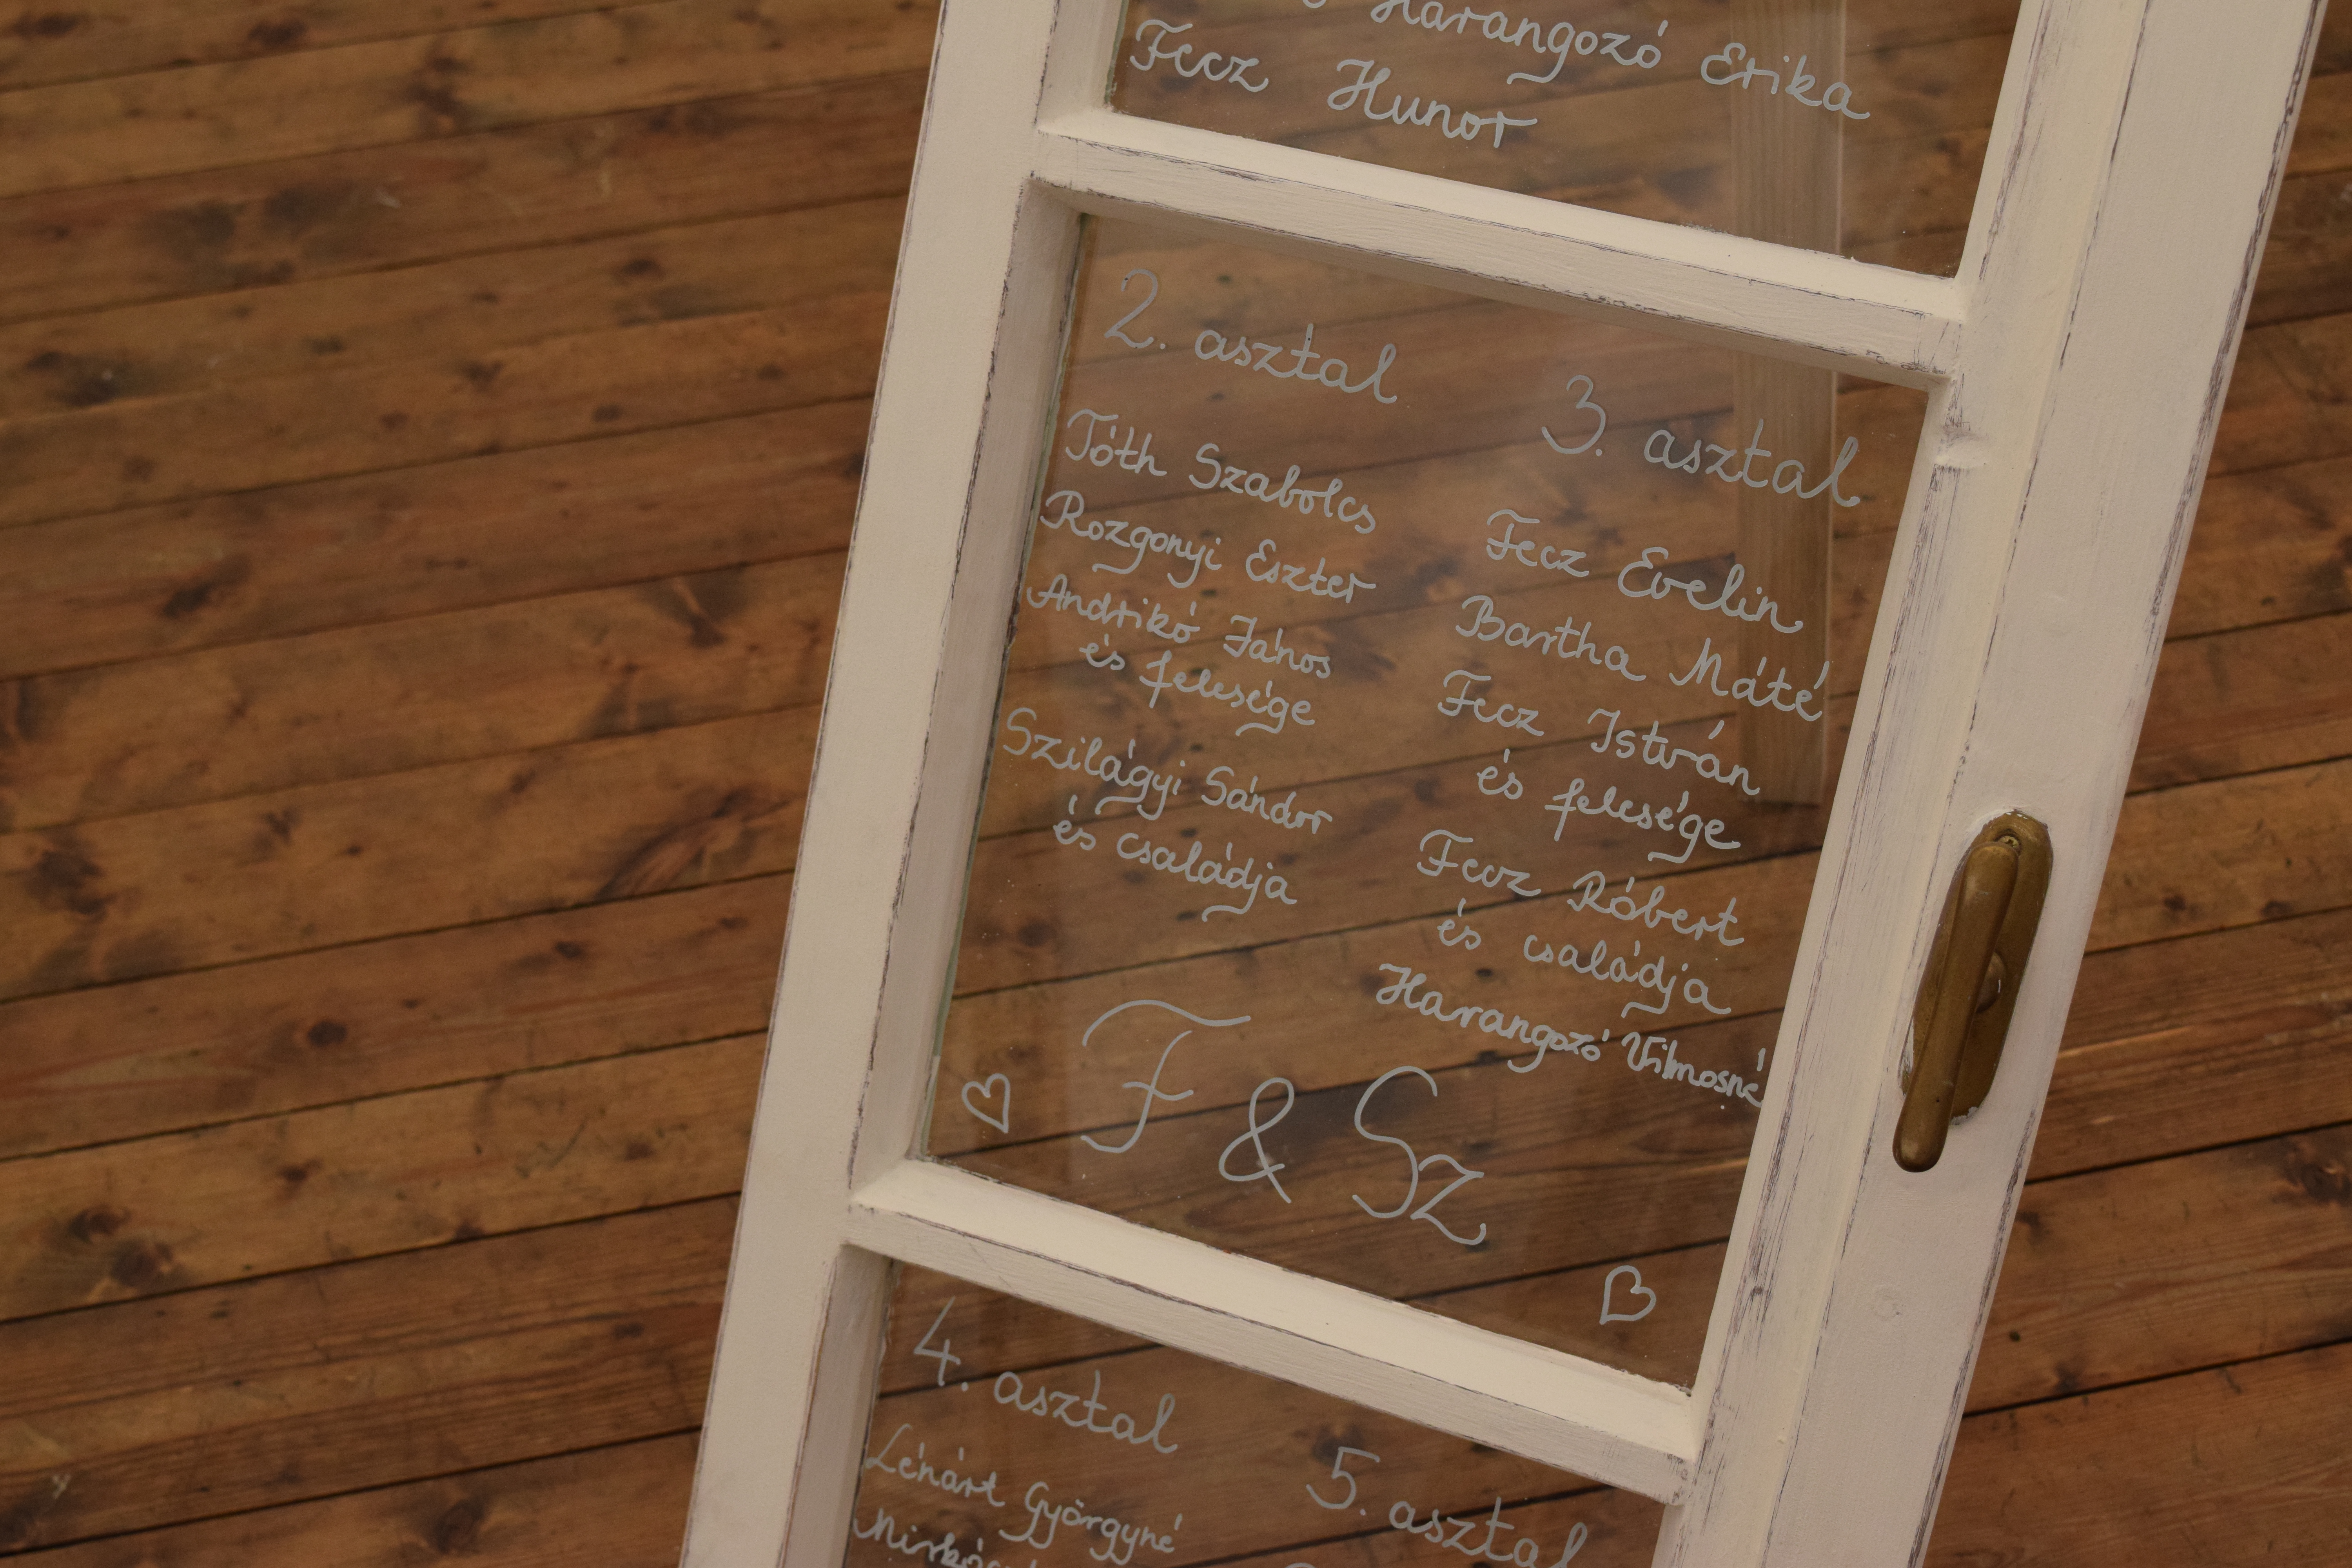 Harangozó Erika
Fecz Hunor
2. asztal
Tóth Szabolcs
Rozgonyi Eszter
Andrikó János
és felesége
Szilágyi Sándor
és családja
3. asztal
Fecz Evelin
Bartha Máté
Fecz István
és felesége
Fecz Róbert
és családja
Harangozó Vilmosné
F & Sz
4. asztal
Lénárt Györgyné
5. asztal